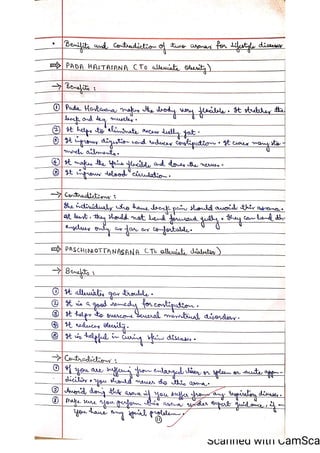 • Benefits and Contradiction of two asanas for lifestyle diseases
⇒ PADA HASTASANA (To alleviate Obesity)
→ Benefits :
① Pada Hastasana makes the body very flexible. It stretches the
back and leg muscles.
② It helps to eliminate excess belly fat.
③ It improves digestion and reduces constipation. It cures many sto-
mach ailments.
④ It makes the spine flexible and tones the nerves.
⑤ It improves blood circulation.
→ Contradictions :
The individuals who have back pain should avoid this asana.
at least they should not bend forward fully. They can bend th-
emselves only as far as comfortable.
⇒ PASCHIMOTTANASANA (To alleviate diabetes)
→ Benefits :
① It alleviates gas trouble.
② It is a good remedy for constipation.
③ It helps to overcome several menstrual disorders.
④ It reduces obesity.
⑤ It is helpful in curing skin diseases.
→ Contradictions :
① If you are suffering from enlarged liver or spleen or acute appe-
dicitis. You should never do this asana.
② Avoid doing this asana if you suffer from any respiratory disease.
③ Make sure you perform this asana under expert guidance, if
you have any spinal problem.
Scanned with CamSca